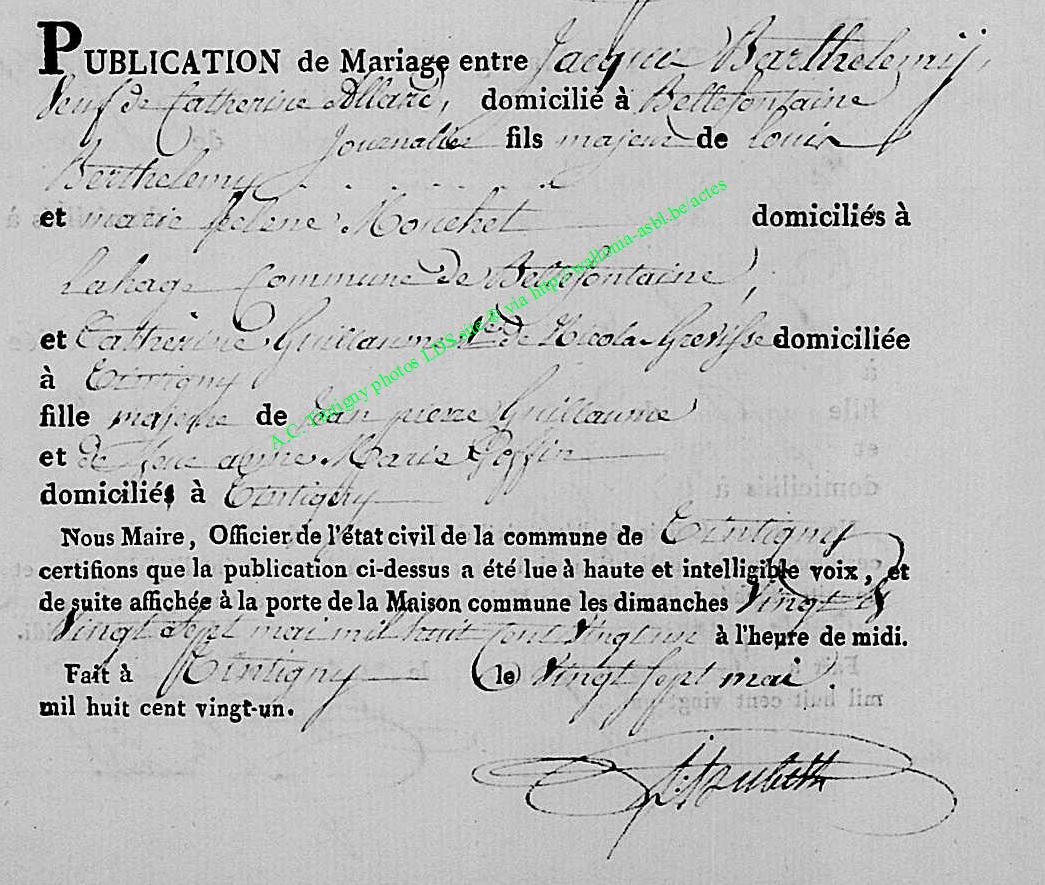 PUBLICATION de Mariage entre Jacque Barthelemij,
Veuf de Catherine Allard, domicilié à Bellefontaine
Journalier fils majeur de Louis
Berthelemy
et marie helene Mouchet domiciliés à
Lahage Commune de Bellefontaine,
et Catherine Guillaume Ve de Nicolas Grevisse domiciliée
à Tintigny
fille majeure de Jean pierre Guillaume
et de Anne Marie Goffin
domiciliés à Tintigny
Nous Maire, Officier de l'état civil de la commune de Tintigny
certifions que la publication ci-dessus a été lue à haute et intelligible voix, et
de suite affichée à la porte de la Maison commune les dimanches Vingt et
Vingt Sept mai mil huit Cent Vingt un à l'heure de midi.
Fait à Tintigny le Vingt Sept mai
mil huit cent vingt-un.
A.C. Tintigny photos LDS site & via http://wallonia-asbl.be/actes